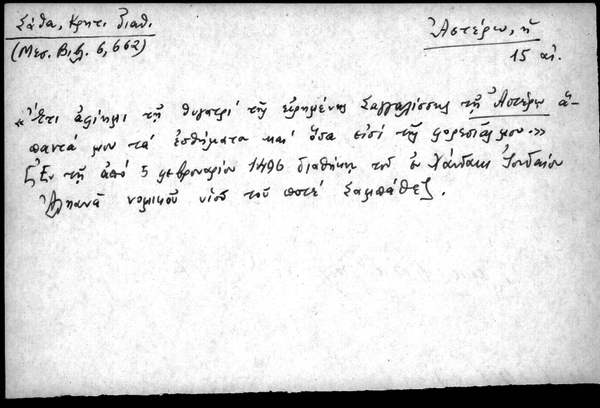 Σάθα, Κρητ. διαθ.
(Μεσ. Βιβλ. 6, 662)
Ἀστέρω, ἡ
15 αἰ.
«Ἔτι ἀφίημι τῇ θυγατρί τῆς εἰρημένης Σαγγαλίσσης τῇ Ἀστέρω ἅ-
παντά μου τά ἐσθήματα καί ὅσα εἰσί τῆς φορεσιᾶς μου.»
[Ἐν τῇ ἀπό 5 φεβρουαρίου 1496 διαθήκῃ τοῦ ἐν Χάνδακι Ἰουδαίου
νομικοῦ υἱοῦ τοῦ ποτέ Σαμπάθε].